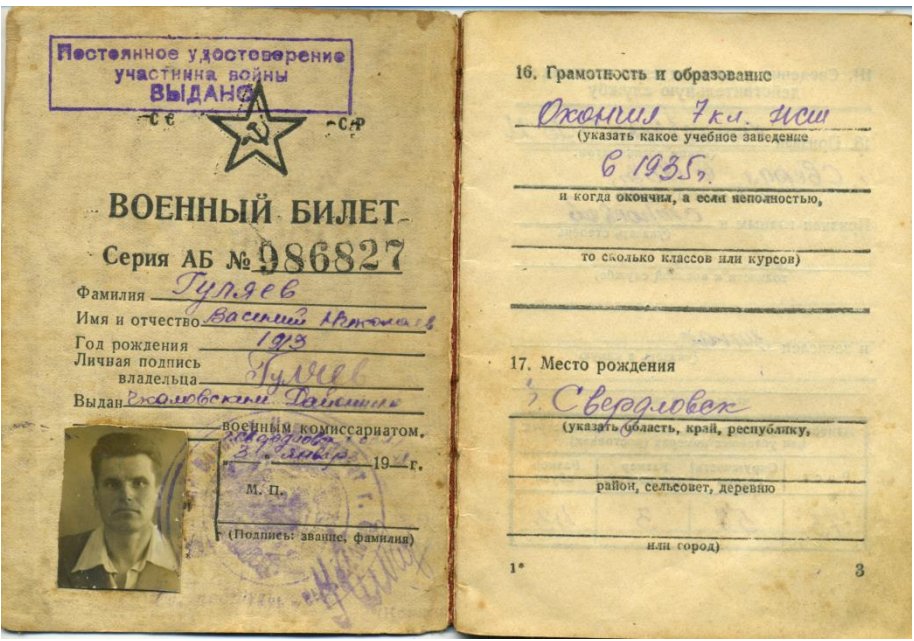 Постоянное удостоверение
участника войны
ВЫДАНО
ВОЕННЫЙ БИЛЕТ
Серия АБ № 986827
Фамилия Гуляев
Имя и отчество Василий Николаев
Год рождения 1913
Личная подпись
владельца Гуляев
Выдан Чкаловским Районным
военным комиссариатом.
г. Свердловска
31 январ 19 г.
М. П.
(Подпись: звание, фамилия)
16. Грамотность и образование
Окончил 7 кл. НСШ
(указать какое учебное заведение
в 1935г.
и когда окончил, а если неполностью,
то сколько классов или курсов)
17. Место рождения
г. Свердловск
(указать область, край, республику,
район, сельсовет, деревню
или город)
1*
3